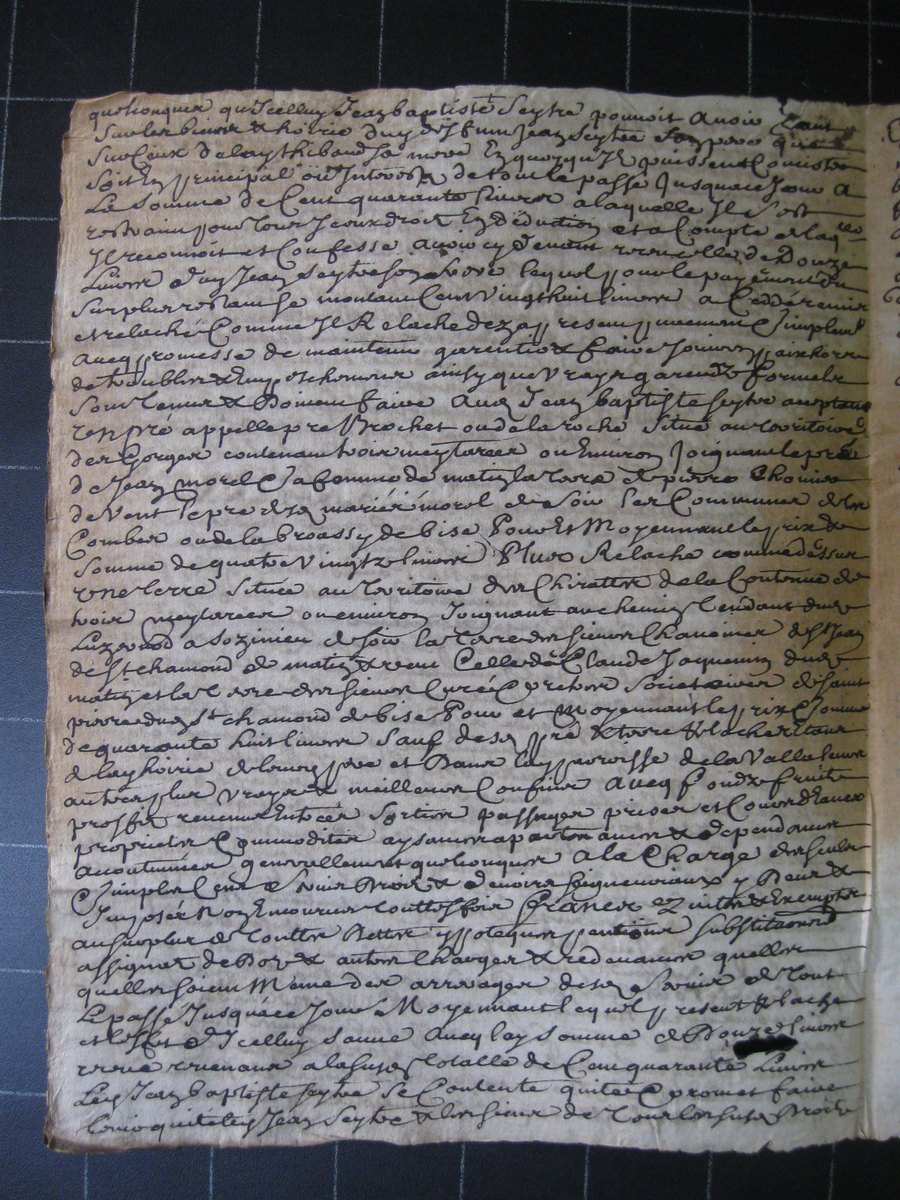 quelconques qu'Icelluy Jean baptiste Seytre pouvoit Avoir tant
Sur les biens & hoirie dud Jean Seytre Son pere que
Sur Ceux de lay thibaud Sa mere En quoy qu'Ils puissent Consister
Soit En principal ou Interests de tout le passé Jusqua ce Jour A
La Somme de Cent quarante Livres a laquelle Il S'est
restraint pour tous Iceux droits En deduction et a Compte de laqlle
Il reconnoit et Confesse avoir cy devant receu celle de Douze
Livres dud Jean Seytre Son frere lequel pour le payement du
Surplus restant Se montant Cent vingt huit livres a Ceddé remis
et relaché Comme Il Relache dez a present purement & Simplemt
avec promesse de maintenir garentir & faire Jouir paix hors
de troubles & Empechemens ainsy que vrays garends formels
Sont tenus & Doivent faire Aud Jean baptiste Seytre acceptant
un Pré appellé pre Brochet ou de la roche Situé au territoire
des Gorges contenant trois meytarées ou Environ Joignant le pré
de Jean morel & Sa femme de matin la terre de pierre
de vent le pré de morel de Soir Les Communes de
Combes ou de la broassy de bise Pour Et Moyennant le prix &
Somme de quatre vingts livres Plus Relache comme dessus
une terre Située au territoire des Chirattes de la Contenue de
trois meytarées ou environ Joignant au chemin tendant de
Luzernod a Sozinieu de Soir la terre des Sieurs Chanoines de St Jean
de St chamond de matin & vent Celle de Claude Jaquemin de
matin et la terre des Sieurs Curé & pretres Societaires de Saint
pierre dud St chamond de bise Pour et Moyennant le prix & Somme
de quarante huit livres Sauf desd pré & terre
de lay hoirie et Dans lay parroisse de la Valla Leurs
autres plus vrays & meilleurs Confins Avec fondz fruits
proffits revenus Entrées Sorties passages prises et Cours d'Eaux
proprietes Commodités aysances apartenances & dependances
acoutumées generallement quelconques A la Charge des Seuls
& Simples Cens & Servis Droits & devoirs Seigneuriaux y Deus &
Imposés Non Enourrus touttesfois Francs quittes & Exempts
au Surplus de touttes Dettes ypoteques pentions Substitutions
assignat de Dot & autres Charges & redevances quelles
quelles Soient Même des arrerages desd Servis de tout
Le passé Jusqu'a ce Jour Moyennant lequel present Relache
et l'effet d'Icelluy Sauve Avec lay Somme de Douze Livres
receue revenant a la Susd Totalle de Cent quarante Livres
Led Jean baptiste Seytre Se Contente quitte & promet faire
tenir quitte led Jean Seytre & les Siens de Tous les Susd Droits